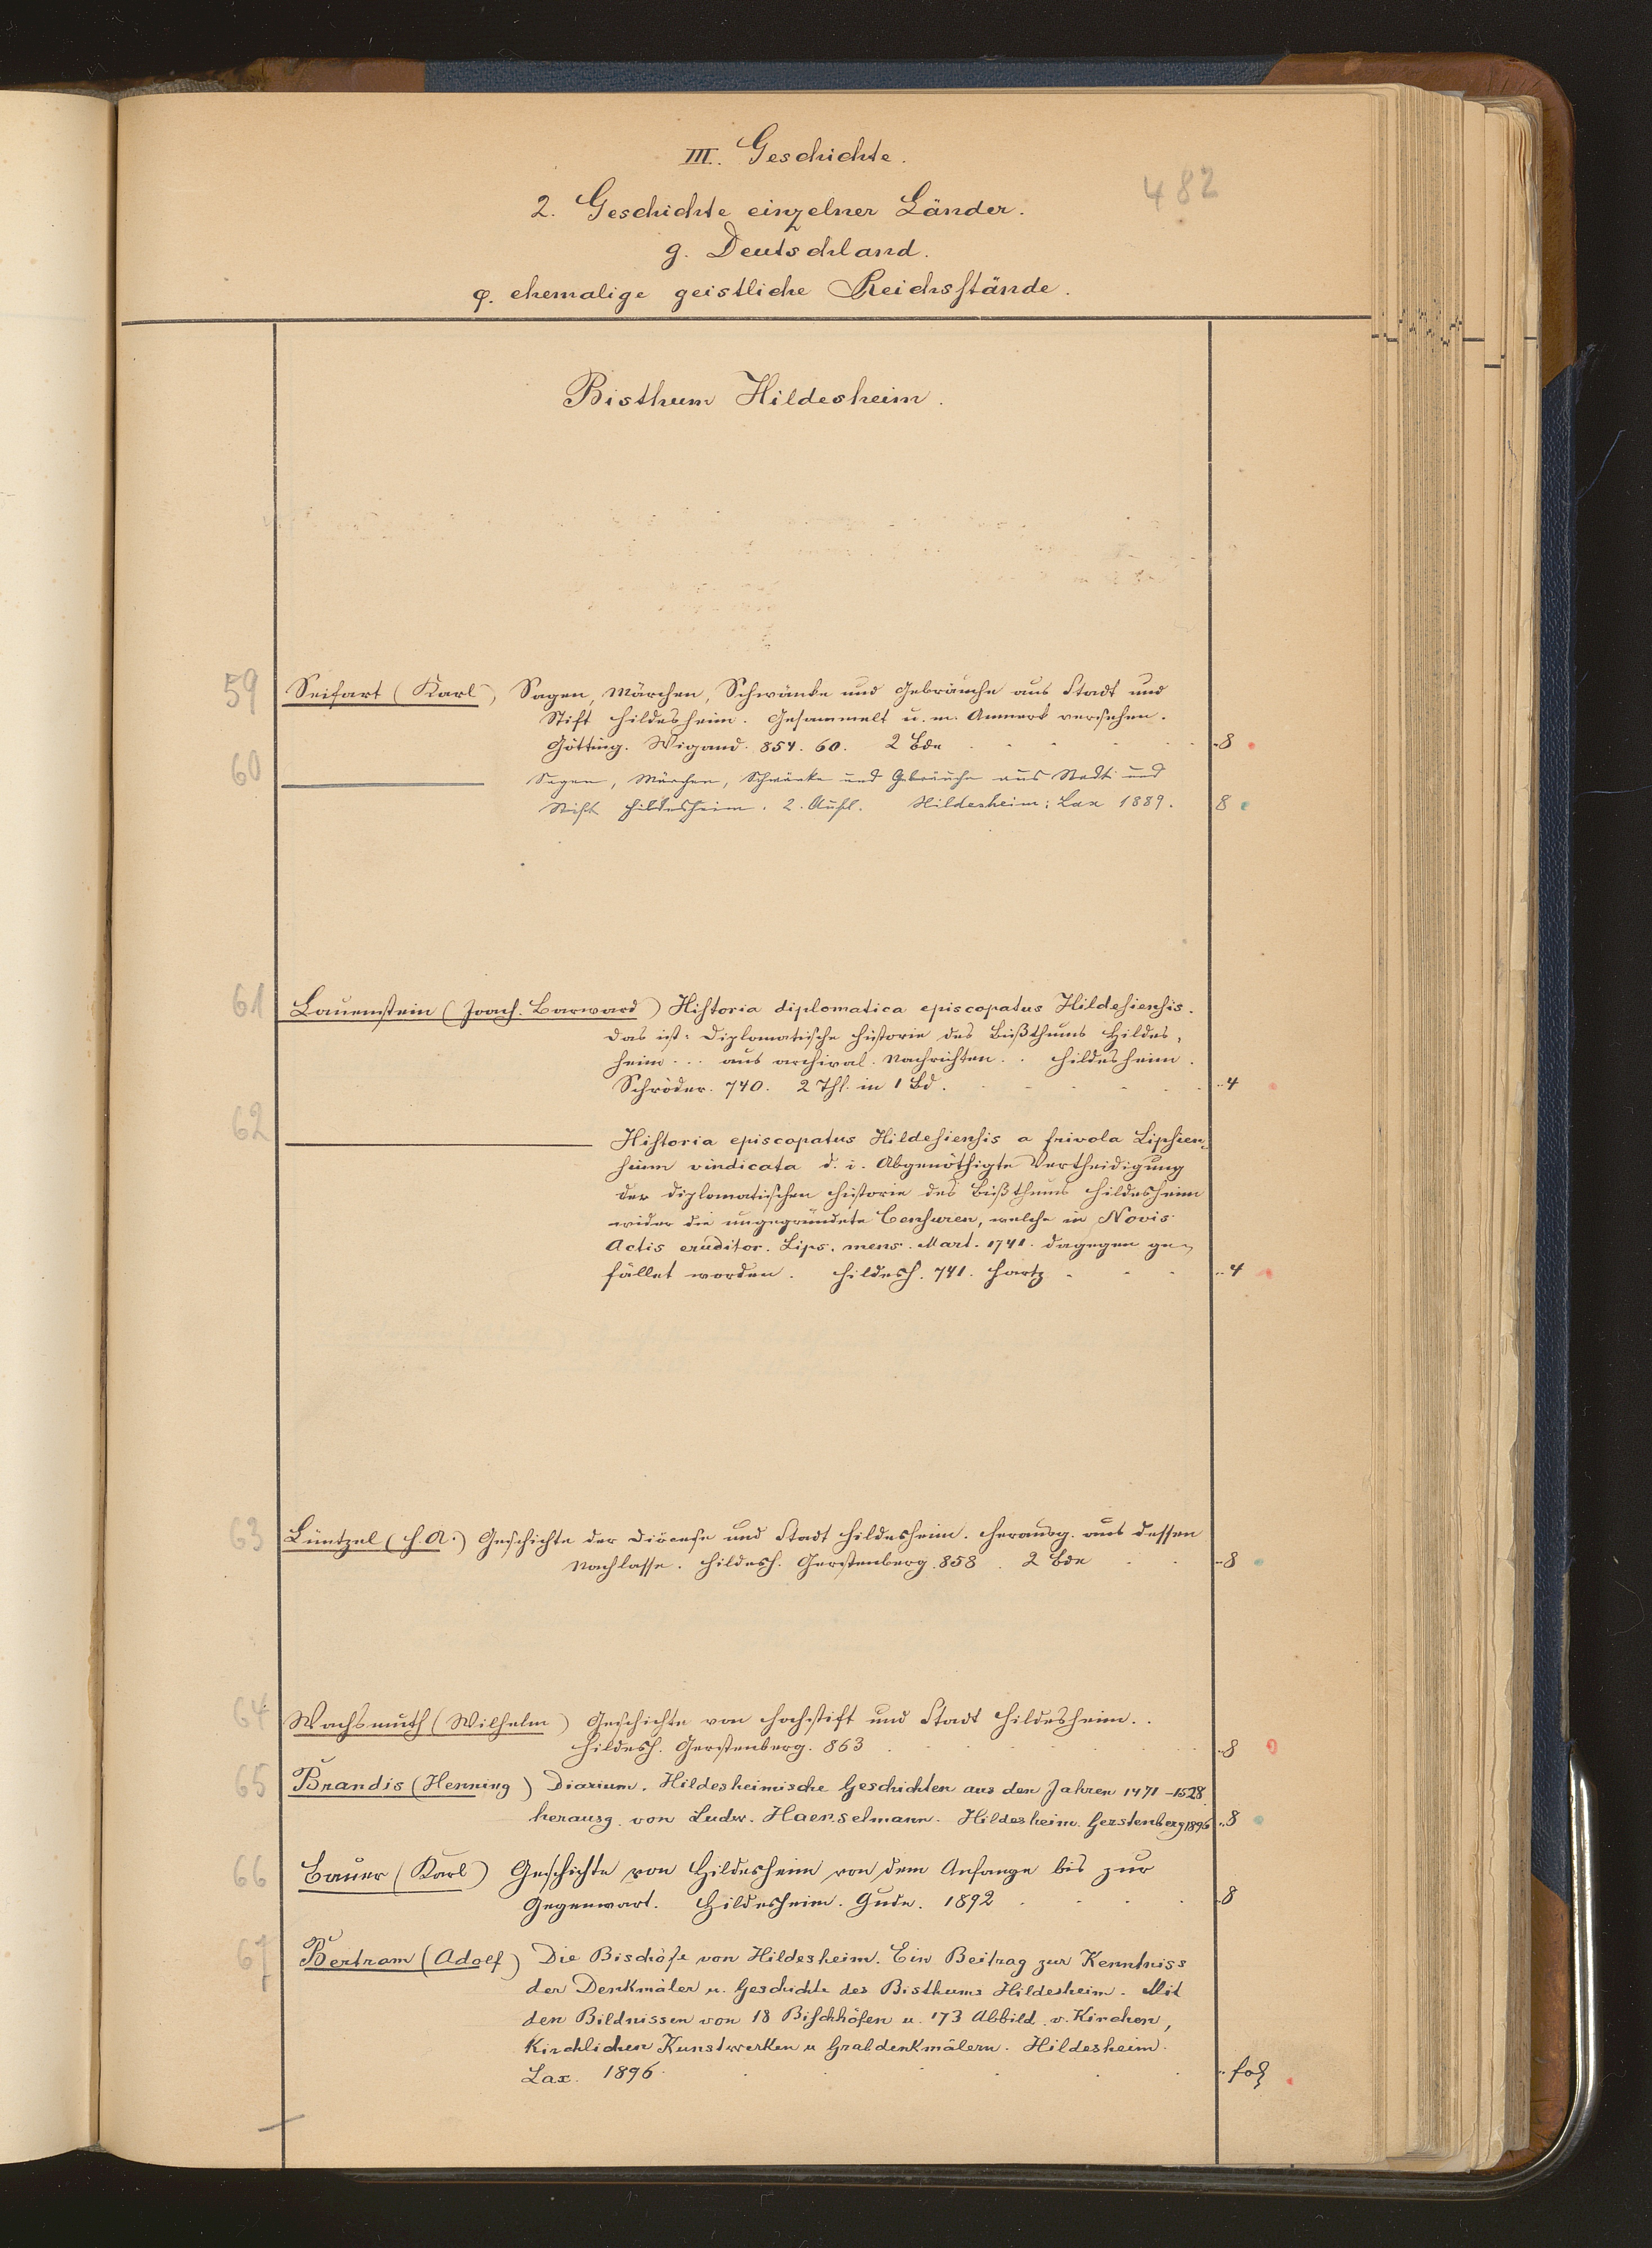 III. Geschichte.
482
2. Geschichte einzelner Länder.
g. Deutschland.
φ. ehemalige geistliche Reichsstände.
Bisthum Hildesheim.
59 Seifart (Karl), Sagen, Märchen, Schwänke und Gebräuche aus Stadt und
Stift Hildesheim. Gesammelt u. m. Anmerk versehen.
Götting. Wigand. 854. 60. 2 Bde 8
60 Sagen, Märchen, Schwänke und Gebräuche aus Stadt und
Stift Hildesheim. 2. Aufl. Hildesheim: Lax 1889. 8
61 Lauenstein (Joach. Barward) Historia diplomatica episcopatus Hildesiensis.
Das ist: Diplomatische Historie des Bißthums Hildes,
heim... aus archival. Nachrichten.. Hildesheim.
Schröder. 740. 2 Thl. in 1 Bd. 4
62 Historia episcopatus Hildesiensis a frivola Lipsien,
sium vindicata d. i. Abgenöthigte Vertheidigung
der diplomatischen Historie des Bißthums Hildesheim
wider die ungegründete Censuren, welche in Novis
Actis eruditor. Lips. mens. Mart. 1741. dagegen ge,
fället worden. Hildesh. 741. Hartz 4
63 Lüntzel (H. A.) Geschichte der Diöcese und Stadt Hildesheim. Herausg. aus dessen
Nachlasse. Hildesh. Gerstenberg. 858. 2 Bde 8
64 Wachsmuth (Wilhelm) Geschichte von Hochstift und Stadt Hildesheim..
Hildesh. Gerstenberg. 863 8
65 Brandis (Henning) Diarium. Hildesheimische Geschichten aus den Jahren 1471-1528.
herausg. von Ludw. Haenselmann. Hildesheim. Gerstenberg 1896 8
66 Bauer (Karl) Geschichte von Hildesheim von dem Anfange bis zur
Gegenwart. Hildesheim. Gude. 1892 8
67 Bertram (Adolf) Die Bischöfe von Hildesheim. Ein Beitrag zur Kenntniss
der Denkmäler u. Geschichte des Bisthums Hildesheim. Mit
den Bildnissen von 18 Bischhöfen u. 173 Abbild. v. Kirchen,
Kirchlichen Kunstwerken u Grabdenkmälern. Hildesheim.
Lax. 1896. fol